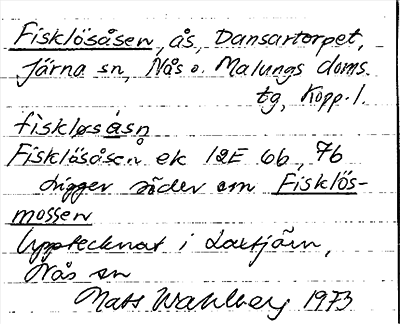 Fisklösåsen, ås, Dansartorpet,
Järna sn, Nås o. Malungs doms.
tg, Kopp. l.
fiskløsåsn
Fisklösåsen ek 12E 6b, 7b
Ligger söder om Fisklös-
mossen
Upptecknat i Laxtjärn,
Nås sn
Mats Wahlberg 1973